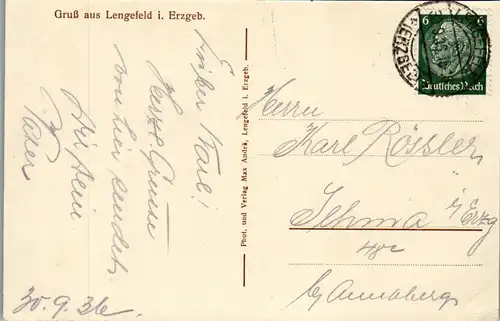 Gruß aus Lengefeld i. Erzgeb.
Lieber Karl!
Herzl. Grüsse
von hier sendet
Dir Dein
Vater
30.9.36
Phot. und Verlag Max Andrä, Lengefeld i. Erzgeb.
6
Deutsches Reich
Herrn
Karl Rössler
Sehma i/Erzg
48c
b/ Annaberg